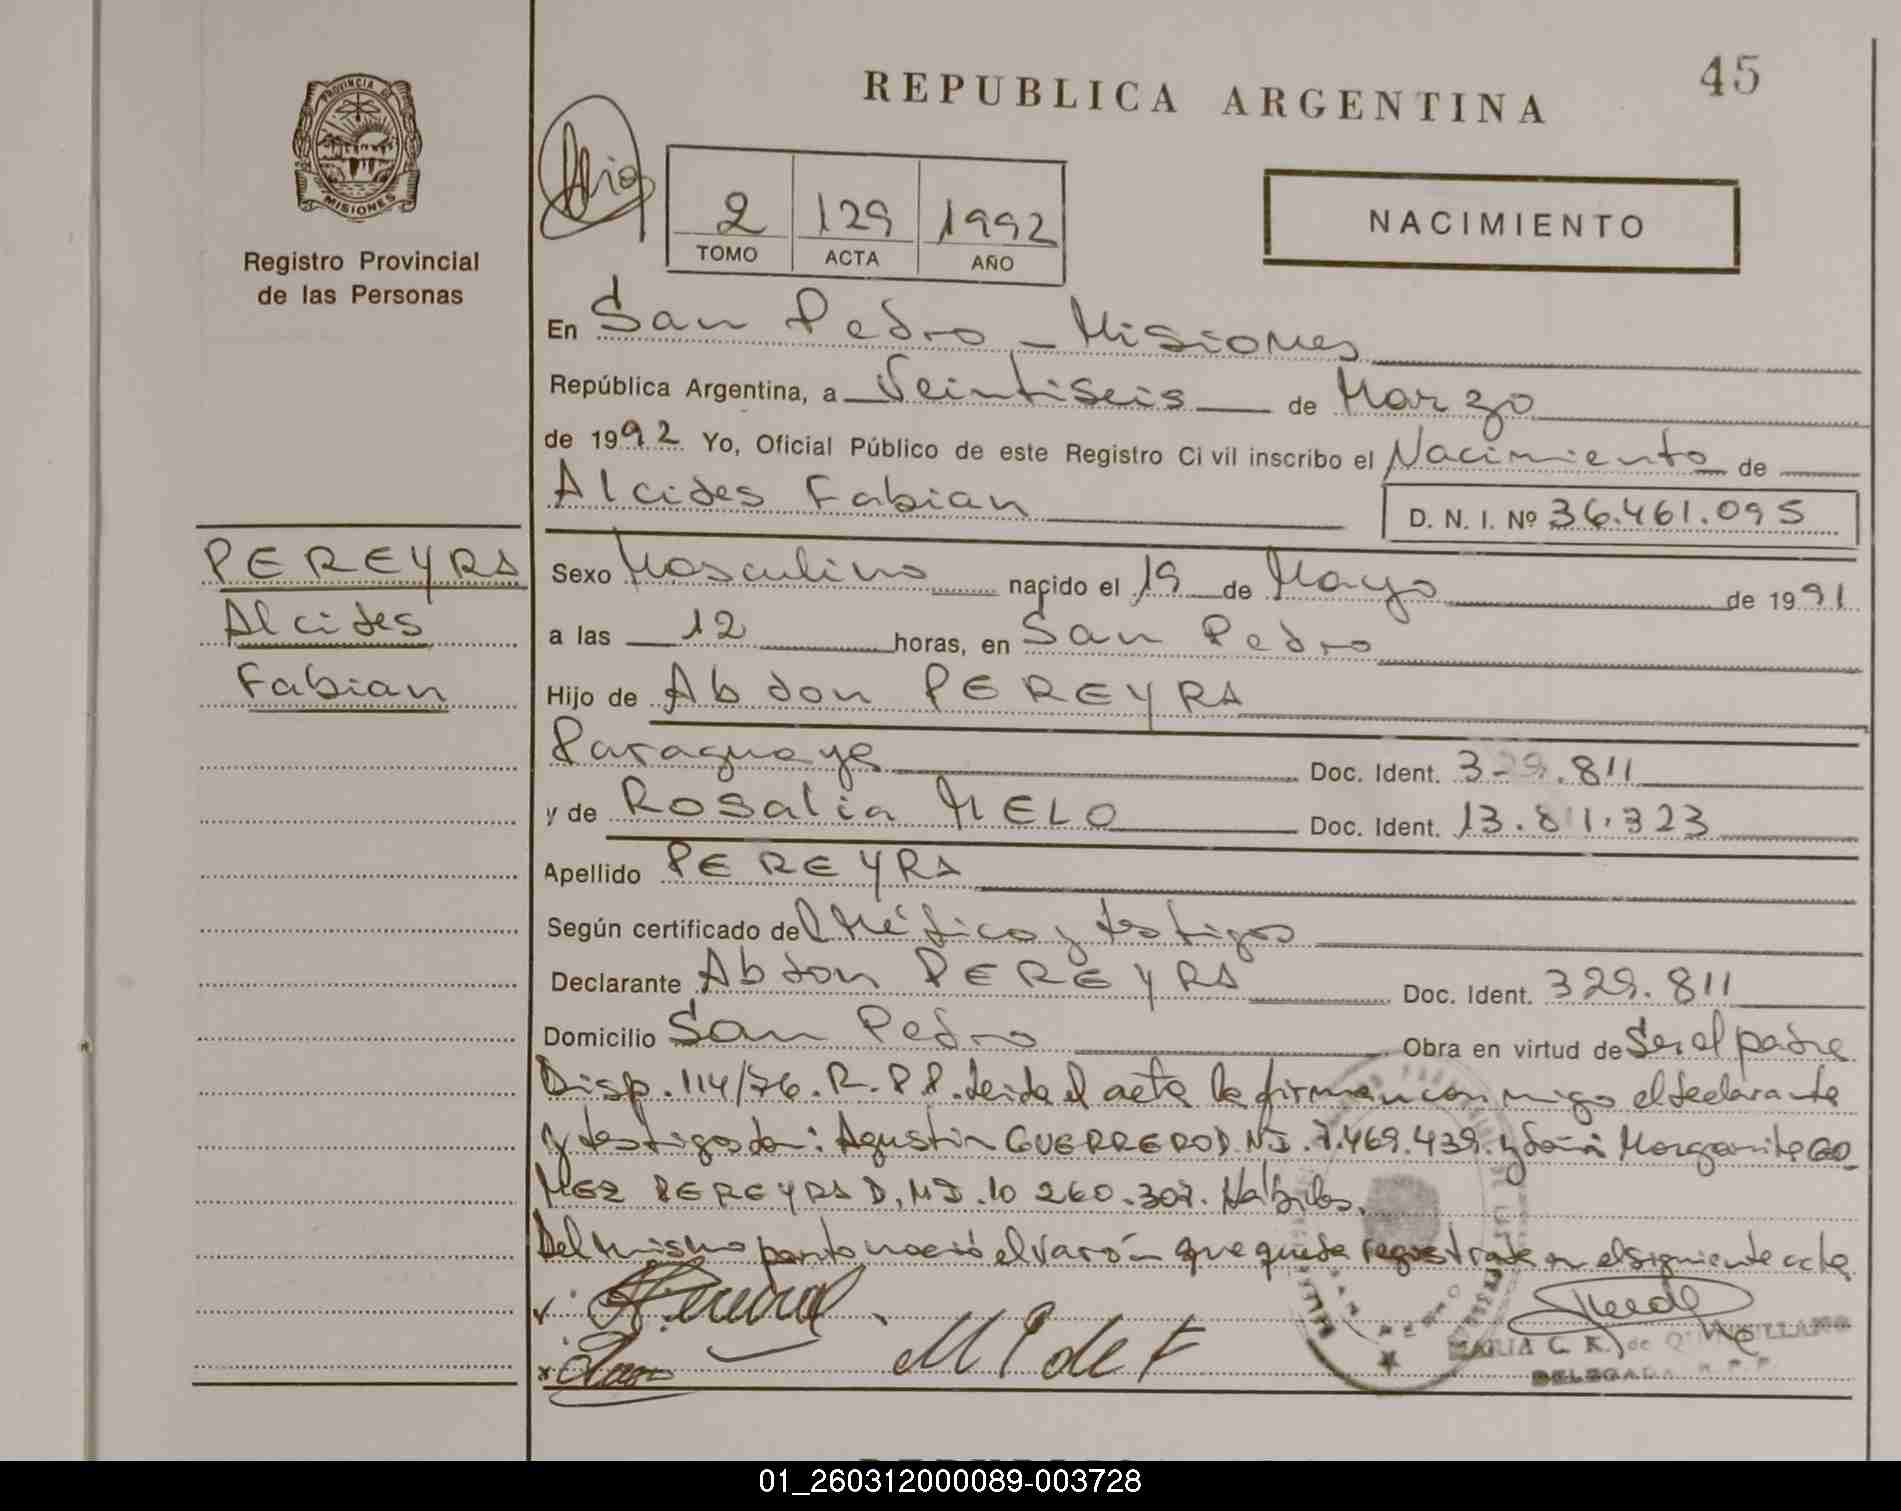 45
REPUBLICA ARGENTINA
PROVINCIA DE
MISIONES
Registro Provincial
de las Personas
2 129 1992
TOMO ACTA AÑO
NACIMIENTO
En San Pedro - Misiones
República Argentina, a Veintiseis de Marzo
de 1992 Yo, Oficial Público de este Registro Civil inscribo el Nacimiento de
Alcides Fabian D. N. I. Nº 36.461.095
PEREYRA
Alcides
Fabian
Sexo Masculino nacido el 19 de Mayo de 1991
a las 12 horas, en San Pedro
Hijo de Abdon PEREYRA
Paraguaya Doc. Ident. 329.811
y de Rosalia MELO Doc. Ident. 13.811.323
Apellido PEREYRA
Según certificado de Médico y testigos
Declarante Abdon PEREYRA Doc. Ident. 329.811
Domicilio San Pedro Obra en virtud de Ser el padre
Disp. 114/76. R.P.P. Leida el acta la firman conmigo el declarante
y testigos don: Agustin GUERRERO D.N.I. 7.469.439. y doña Margarita GO
MEZ PEREYRA D.N.I. 10 260.307. Habiles.
Del mismo parto nació el varón que queda registrada en el siguiente acta
M P de F
SAN PEDRO
MARIA C. R. de QUINQUILLANO
DELEGADA R.P.P.
01_260312000089-003728